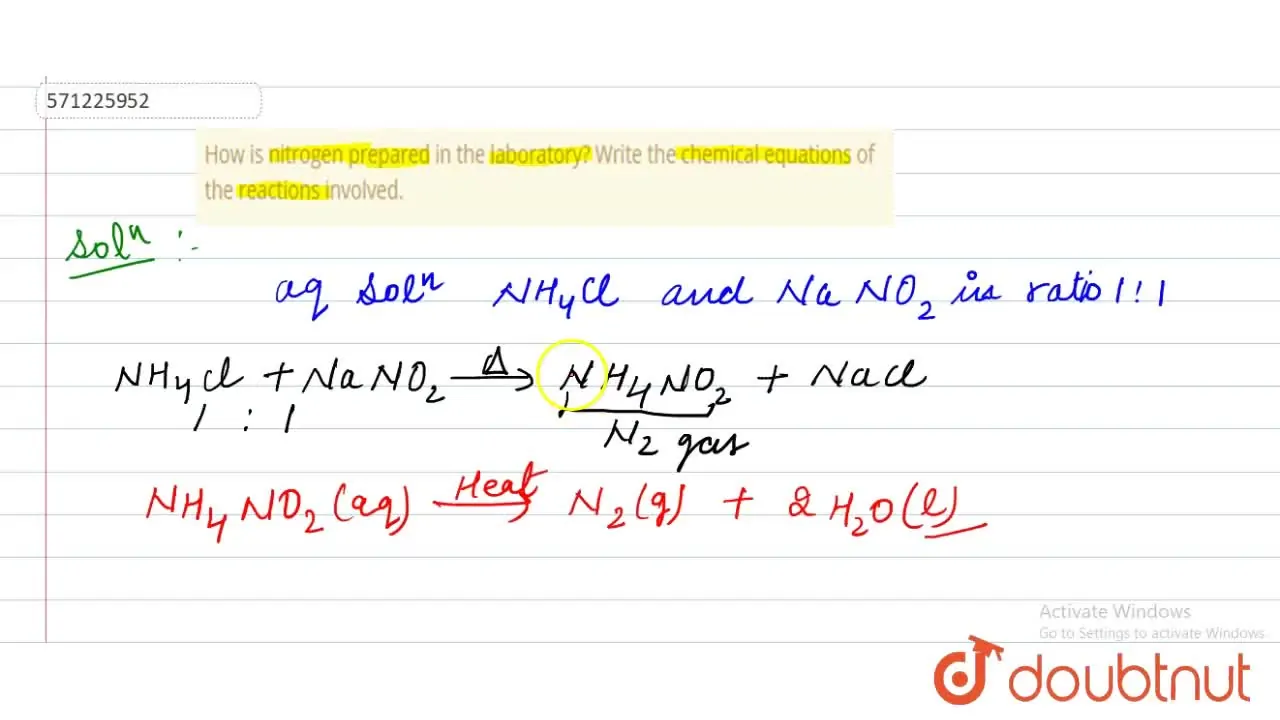 571225952
How is nitrogen prepared in the laboratory? Write the chemical equations of
the reactions involved.
Solⁿ :-
aq Solⁿ NH₄Cl and NaNO₂ in ratio 1:1
NH₄Cl + NaNO₂ —Δ→ NH₄NO₂ + NaCl
1 : 1
N₂ gas
NH₄NO₂(aq) —Heat→ N₂(g) + 2H₂O(l)
Activate Windows
Go to Settings to activate Windows
doubtnut